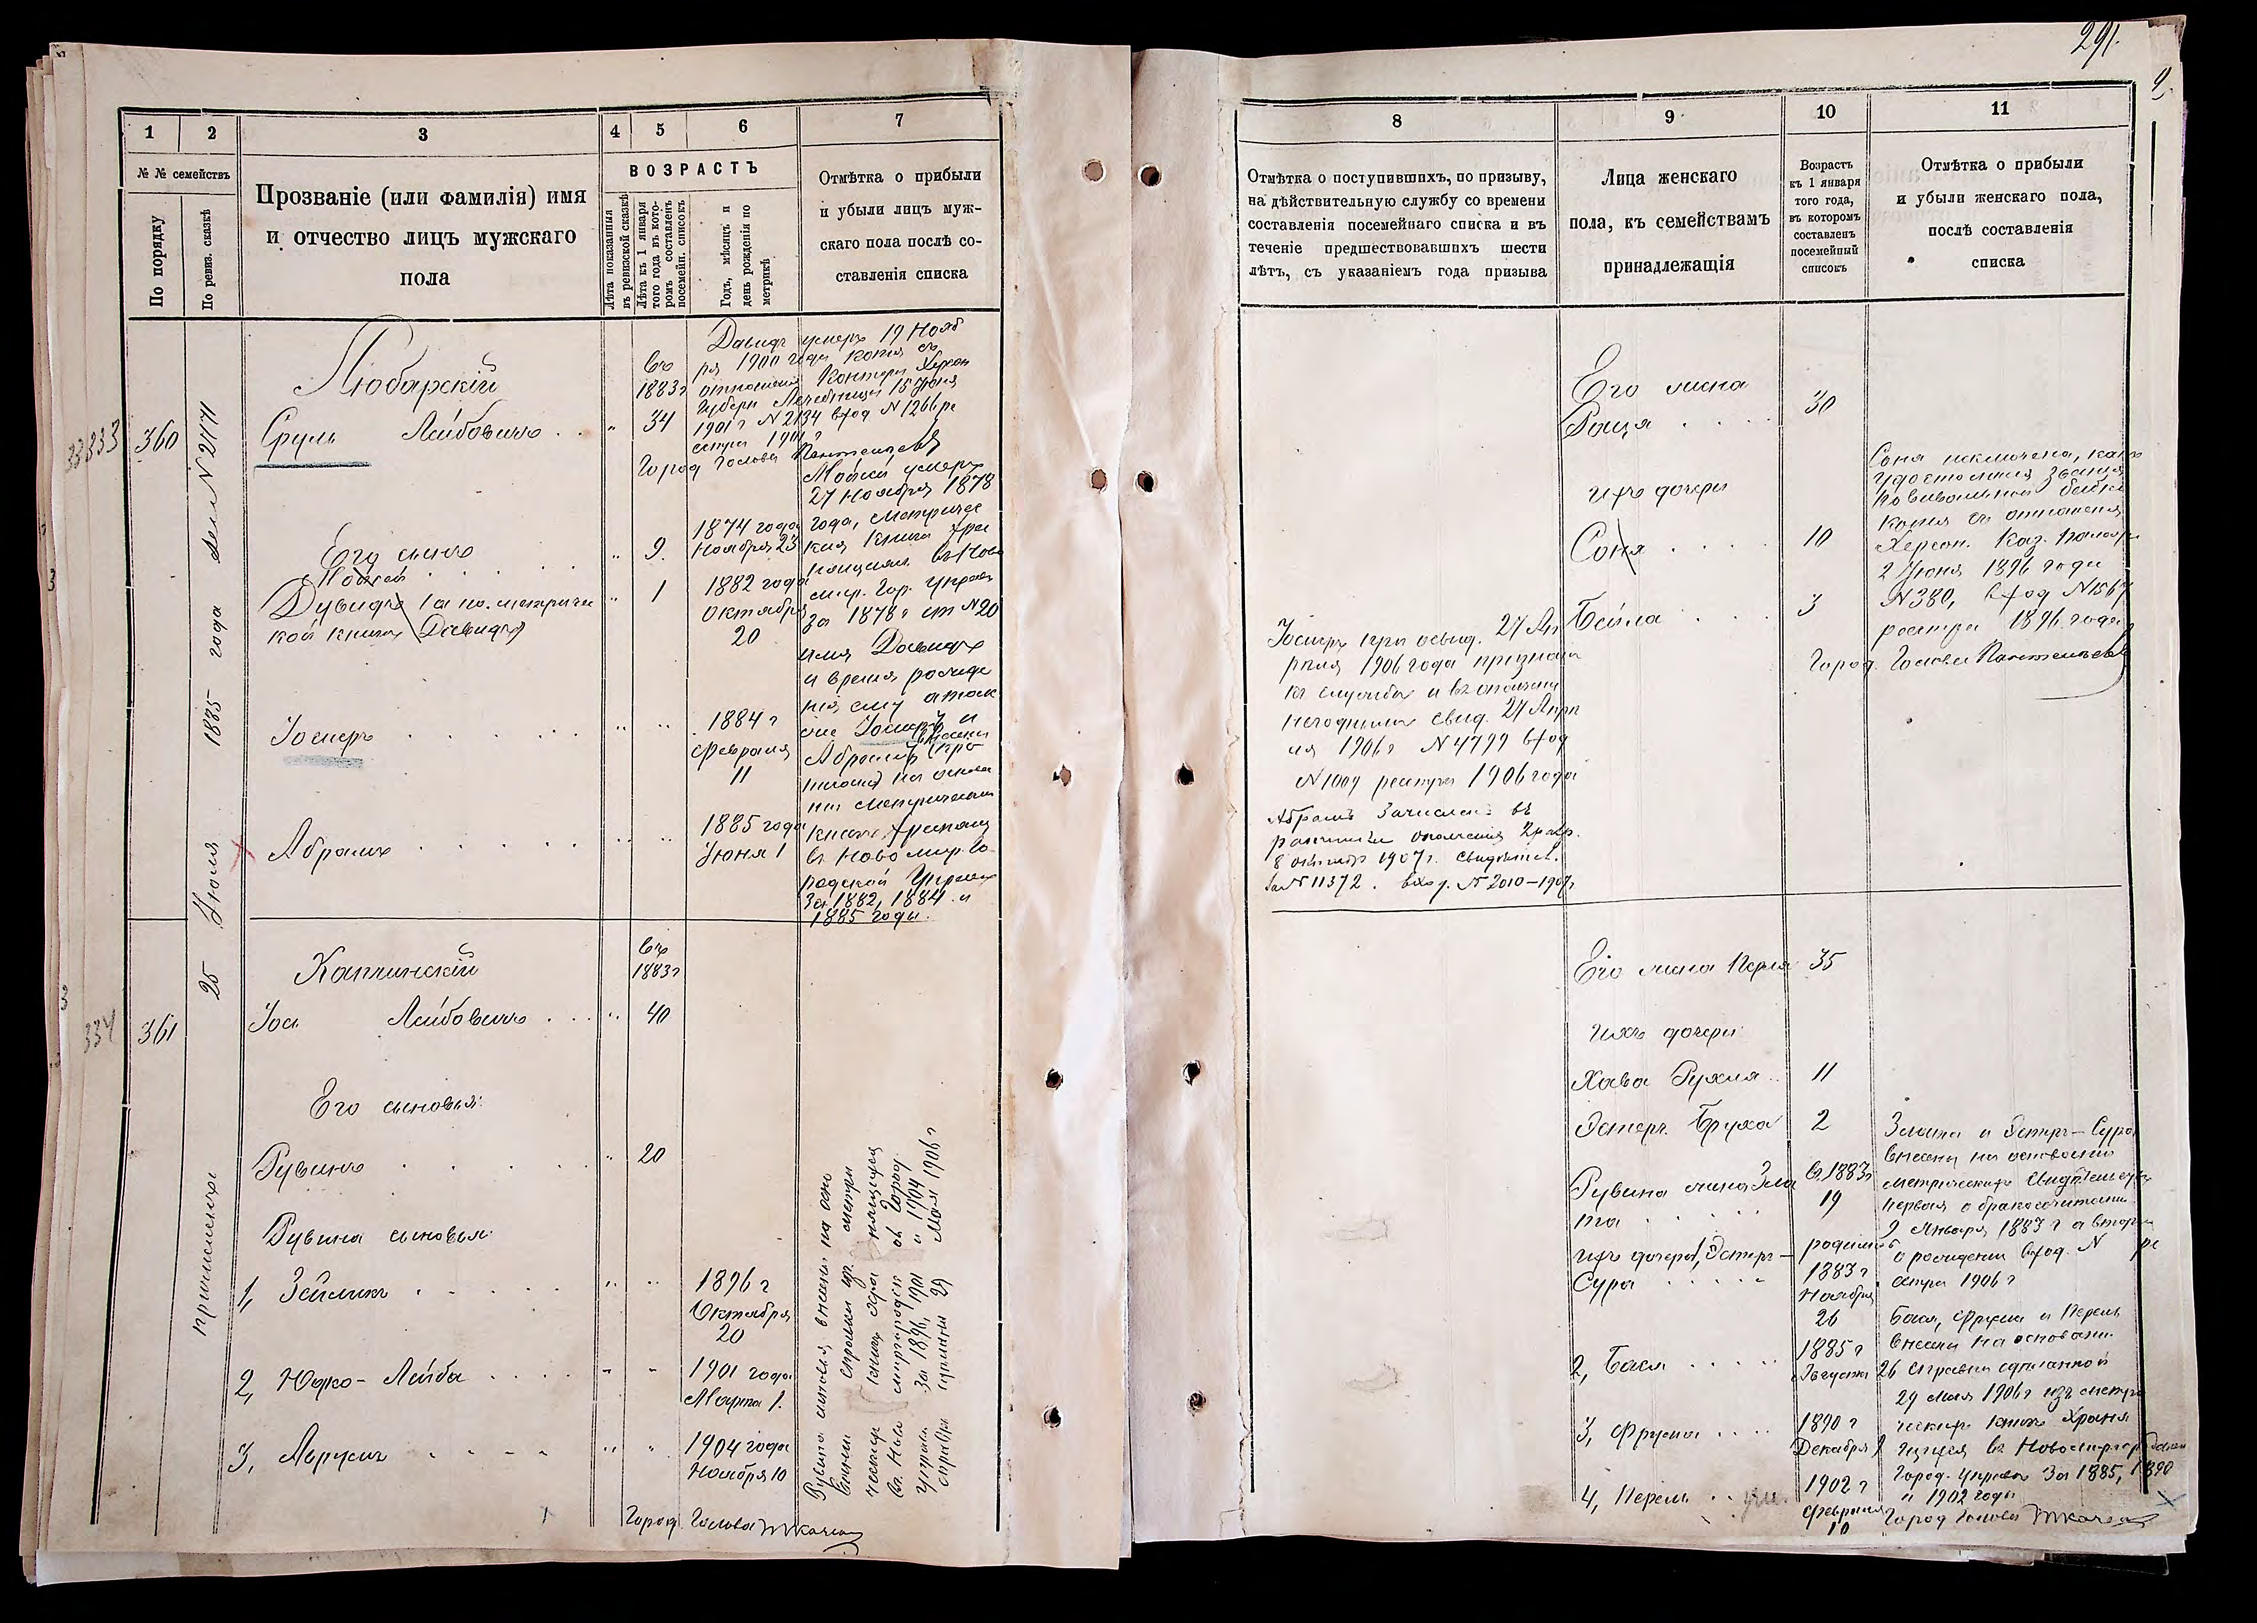 291.
1
2
3
4
5
6
7
№ № семействъ
По порядку
По ревиз. сказкѣ
Прозваніе (или фамилія) имя
и отчество лицъ мужскаго
пола
ВОЗРАСТЪ
Лѣта показанныя
въ ревизской сказкѣ
Лѣта къ 1 января
того года въ кото-
ромъ составленъ
посемейн. списокъ
Годъ, мѣсяцъ и
день рожденія по
метрикѣ
Отмѣтка о прибыли
и убыли лицъ муж-
скаго пола послѣ со-
ставленія списка
33833
360
25 Іюля 1885 года дел N 2171
причислены
Любарскій
Въ
1883 г
Сруль Лейбовичъ . .
"
34
Давидъ умеръ 19 Нояб
ря 1900 года копія съ
отношенія Конторы Херсон
Губерн Лечебницы 15 Іюня
1901 г N 2134 вход N 1266 ре
естра 1901 г
Город Голова Пантелеевъ
Его сыновья
Мойсей
"
9.
1874 года
Ноября 23
Мойсей умеръ
27 Ноября 1878
года, метричес
кая книга хра
нящаяся въ Ново
мир. Гор. Управ
за 1878 г ст N 20
Дувидъ (а по метричес
кой книгѣ Давидъ)
"
1
1882 года
Октября
20
имя Давидъ
и время рожде
нія ему а также
Іосифъ и
Абрамъ внесены
на основа
ніи метрическихъ
книгъ хранящ
въ Ново мир. Го-
родской Управѣ
За 1882, 1884 и
1885 годы.
Іосифъ
1884 г
Февраля
11
Абрамъ
1885 года
Іюня 1
334
361
Капчинскій
Въ
1883 г
Іось Лейбовичъ . . .
40
Его сыновья:
Рувинъ
20
Рувина сыновья:
1, Зейликъ
1896 г
Октября
20
2, Юдко-Лейба
1901 года
Марта 1.
3, Лерусъ
1904 года
Ноября 10
Рувина сыновья внесены на осно
ваніи справки изъ метри
ческихъ книгъ хранящихся
въ Ново миргородской Город.
Управѣ За 1896, 1901 и 1904
справки 29 Мая 1906 г
Город. Голова Ткачевъ
8
9
10
11
Отмѣтка о поступившихъ, по призыву,
на дѣйствительную службу со времени
составленія посемейнаго списка и въ
теченіе предшествовавшихъ шести
лѣтъ, съ указаніемъ года призыва
Лица женскаго
пола, къ семействамъ
принадлежащія
Возрастъ
къ 1 января
того года,
въ которомъ
составленъ
посемейный
списокъ
Отмѣтка о прибыли
и убыли женскаго пола,
послѣ составленія
списка
Его жена
Рейзя . . . .
30
ихъ дочери
Соня . . . .
10
Соня исключена, какъ
удостоенная званія
повивальной бабки
копія съ отношенія
Херсон. Каз. Палаты
2 Іюня 1896 года
N 380, вход N 1567
реестра 1896 года
Город. Голова Пантелеевъ
Бейла . . . .
3
Іосифъ при освид. 27 Ап
рѣля 1906 года признанъ
къ службѣ и въ ополченіи
негоднымъ свид. 27 Апрѣ
ля 1906 г N 4799 вход
N 1009 реестра 1906 года
Абрамъ Зачисленъ въ
ратники ополченія 2 разр.
8 октября 1907 г. свидѣтел.
за № 11372. вход. № 2010–1907 г
Его жена Перля
35
ихъ дочери:
Хава Рухля
11
Эстеръ Бруха
2
Рувина жена Зла
та
въ 1883 г
19
Злата и Эстеръ-Сура
внесены на основаніи
метрическихъ свидѣтельствъ
первая о бракосочетаніи
9 Января 1883 г а вторая
о рожденіи вход. N ре
естра 1906 г
ихъ дочери 1, Эстеръ-
Сура
родилась
1883 г
Ноября
26
2, Бася
1885 г
Августа 26
Бася, Фрума и Перель
внесены на основаніи
справки сдѣланной
29 Мая 1906 г изъ метри
ческихъ книгъ храня
щихся въ Новомиргородской
Город. Управѣ За 1885, 1890
и 1902 годы
3, Фрума
1890 г
Декабря 1
4, Перель . . ум.
1902 г
Февраля
10
Город Голова Ткачевъ